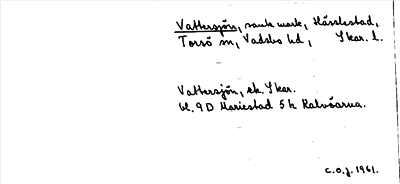 Vattersjön, sank mark, Hässlestad,
Torsö sn, Vadsbo hd, Skar. l.
Vattersjön, ek. Skar.
bl. 9D Mariestad 5h Kalvöarna.
C.O.J. 1961.